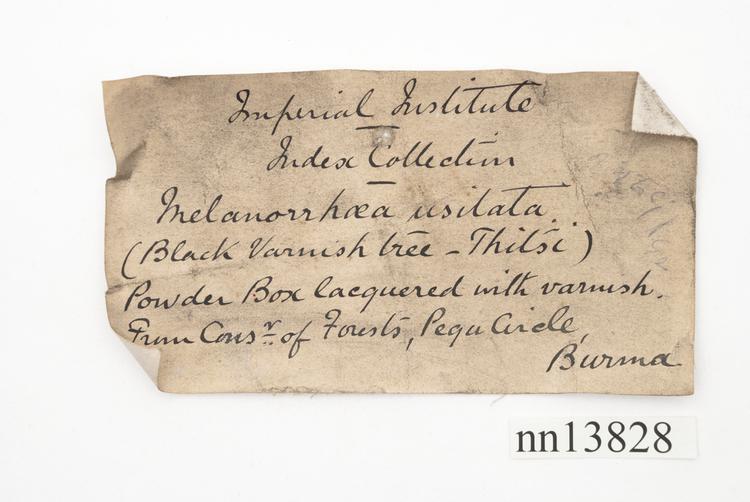 Imperial Institute
Index Collection
Melanorrhœa usitata.
(Black Varnish tree - Thitsi)
Powder Box lacquered with varnish.
From Consr. of Forests, Pegu Circle,
Burma
nn13828